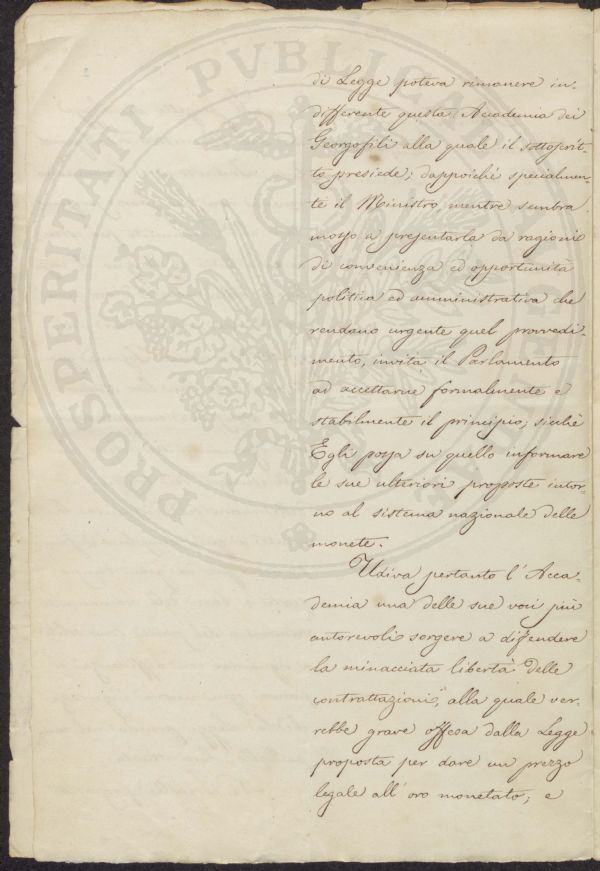 PROSPERITATI PVBLICAE AVGENDAE
di Legge poteva rimanere in-
differente questa Accademia dei
Georgofili alla quale il sottoscrit-
to presiede; dappoiché specialmen-
te il Ministro, mentre sembra
mosso a presentarla da ragioni
di convenienza ed opportunità
politica ed amministrativa che
rendano urgente quel provvedi-
mento, invita il Parlamento
ad accettarne formalmente e
stabilmente il principio; sicché
Egli possa su quello informare
le sue ulteriori proposte intor-
no al sistema nazionale delle
monete.
Udiva pertanto l'Acca-
demia una delle sue voci più
autorevoli sorgere a difendere
la minacciata libertà delle
contrattazioni, alla quale ver-
rebbe grave offesa dalla Legge
proposta per dare un prezzo
legale all'oro monetato; e